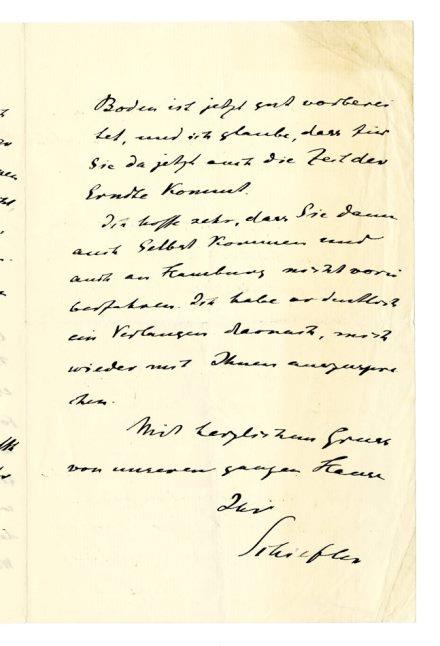 Boden ist jetzt gut vorberei
tet, und ich glaube, dass für
Sie da jetzt auch die Zeit der
Erndte kommt.
Ich hoffe sehr, dass Sie dann
auch selbst kommen und
auch an Hamburg nicht vorü
berfahren. Ich habe ordentlich
ein Verlangen darnach, mich
wieder mit Ihnen auszuspre
chen.
Mit herzlichem Gruss
von unserem ganzen Hause
Ihr
Schiefler